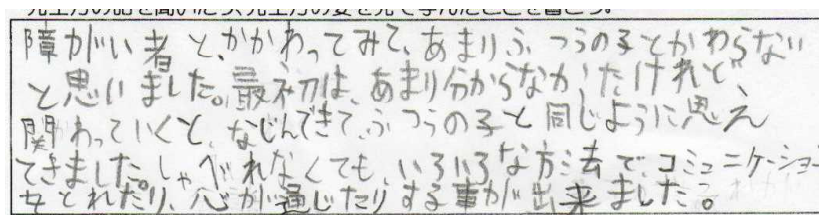 障がい者と、かかわってみて、あまりふつうの子とかわらない
と思いました。最初は、あまり分からなかったけれど、
関わっていくと、なじんできて、ふつうの子と同じように思え
てきました。しゃべれなくても、いろいろな方法で、コミュニケーション
をとれたり、心が通じたりする事が出来ました。